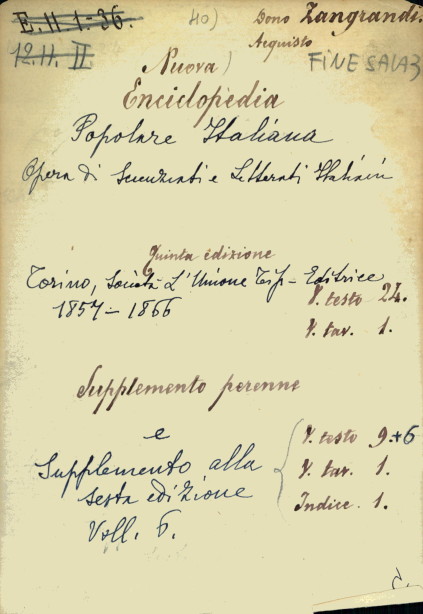 E. H. 1. - 36. 40) Dono Zangrandi.
12. H. II Acquisto
FINE SALA 3
(Nuova)
Enciclopedia
Popolare Italiana
Opera di Scienziati e Letterati Italiani
Quinta edizione
Torino, Società L'Unione Tip - Editrice
1857 - 1866 V. testo 24.
V. tav. 1.
Supplemento perenne
e V. testo 9.+6
Supplemento alla V. tav. 1.
sesta edizione Indice. 1.
Voll. 6.